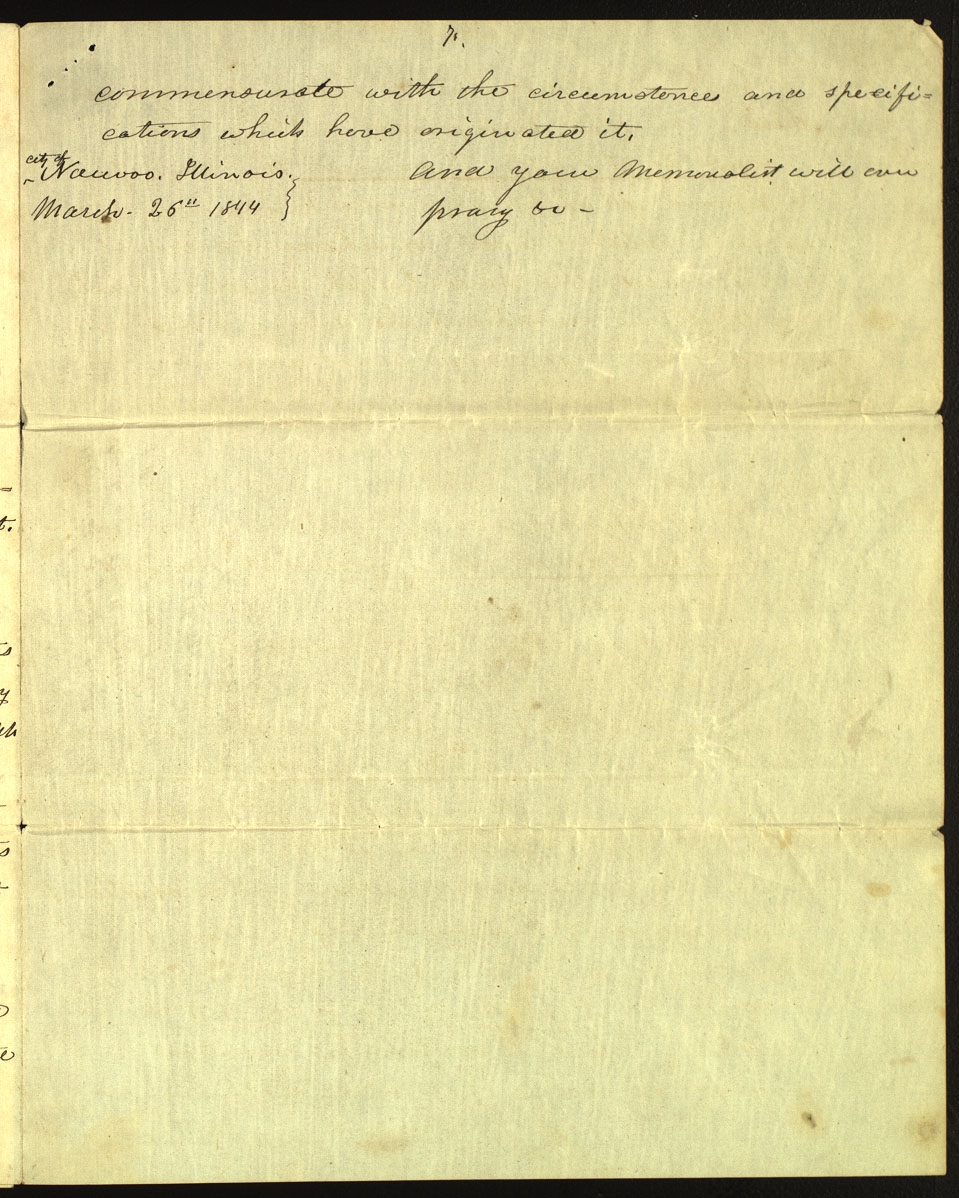 7.
commensurate with the circumstances and specifi=
cations which have originated it.
city of
Nauvoo. Illinois. And your Memorialist will ever
March. 26th 1844 } pray &c –
=
t.
s
y
s
e